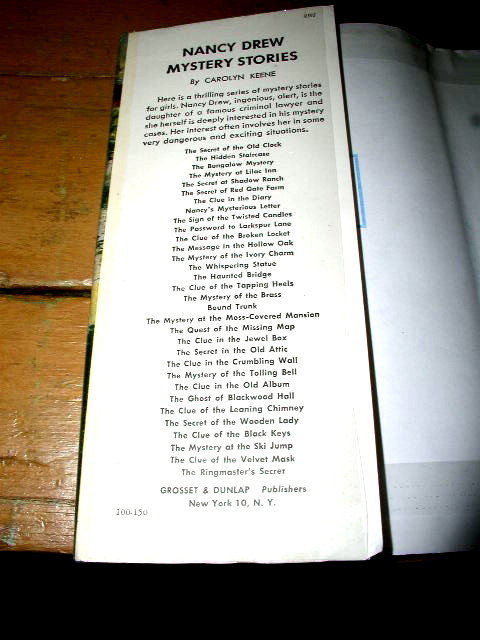 NANCY DREW
MYSTERY STORIES
By CAROLYN KEENE
Here is a thrilling series of mystery stories
for girls. Nancy Drew, ingenious, alert, is the
daughter of a famous criminal lawyer and
she herself is deeply interested in his mystery
cases. Her interest often involves her in some
very dangerous and exciting situations.
The Secret of the Old Clock
The Hidden Staircase
The Bungalow Mystery
The Mystery at Lilac Inn
The Secret at Shadow Ranch
The Secret of Red Gate Farm
The Clue in the Diary
Nancy's Mysterious Letter
The Sign of the Twisted Candles
The Password to Larkspur Lane
The Clue of the Broken Locket
The Message in the Hollow Oak
The Mystery of the Ivory Charm
The Whispering Statue
The Haunted Bridge
The Clue of the Tapping Heels
The Mystery of the Brass
Bound Trunk
The Mystery at the Moss-Covered Mansion
The Quest of the Missing Map
The Clue in the Jewel Box
The Secret in the Old Attic
The Clue in the Crumbling Wall
The Mystery of the Tolling Bell
The Clue in the Old Album
The Ghost of Blackwood Hall
The Clue of the Leaning Chimney
The Secret of the Wooden Lady
The Clue of the Black Keys
The Mystery at the Ski Jump
The Clue of the Velvet Mask
The Ringmaster's Secret
GROSSET & DUNLAP Publishers
New York 10, N. Y.
100-150